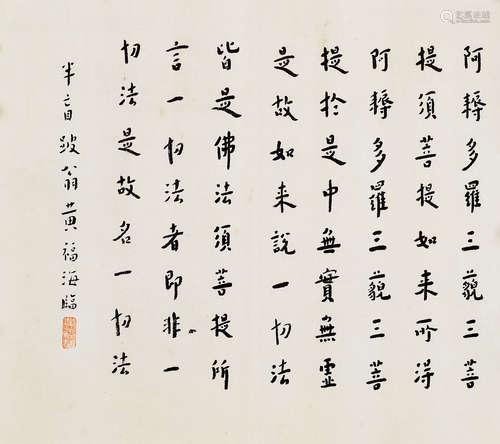 阿耨多羅三藐三菩
提須菩提如来所得
阿耨多羅三藐三菩
提扵是中無實無虛
是故如来說一切法
皆是佛法須菩提所
言一切法者即非一
切法是故名一切法
半盲跛翁黄福海臨